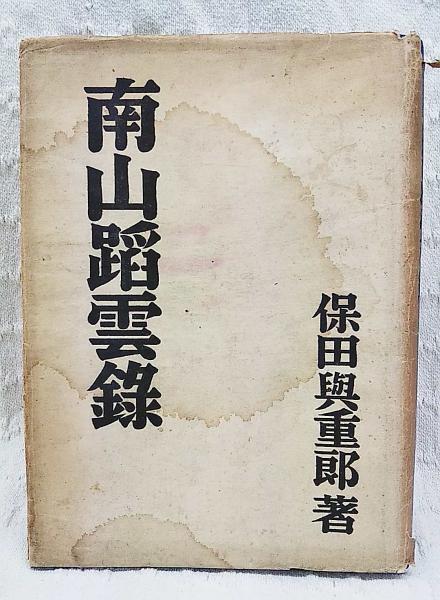 南山蹈雲錄
保田與重郎著